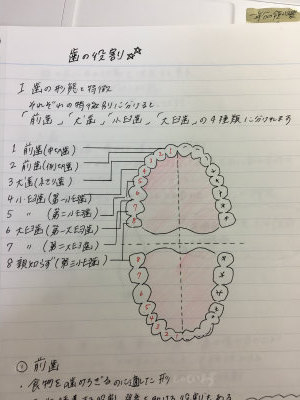 歯の役割☆☆
I 歯の形態と特徴
それぞれの特徴別に分けると
「前歯」「犬歯」「小臼歯」「大臼歯」の4種類に分けれます
1 前歯(中切歯)
2 前歯(側切歯)
3 犬歯(糸きり歯)
4 小臼歯(第一小臼歯)
5 〃 (第二小臼歯)
6 大臼歯(第一大臼歯)
7 〃 (第二大臼歯)
8 親知らず(第三小臼歯)
1
2
3
4
5
6
7
8
8
7
6
5
4
3
2
1
① 前歯
・食物を噛みちぎるのに適した形